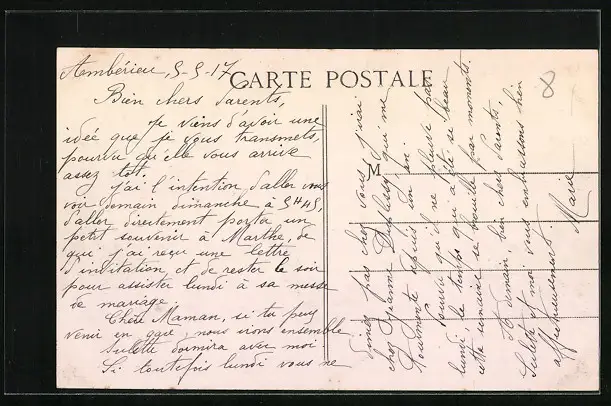 Ambérieu, 5-5-17
CARTE POSTALE
Bien chers Parents,
Je viens d'avoir une
idée que je vous transmets,
pourvu qu'elle vous arrive
assez tôt.
J'ai l'intention d'aller vous
voir demain dimanche à 5H45,
d'aller directement porter un
petit souvenir à Marthe, de
qui j'ai reçu une lettre
d'invitation et de rester le soir
pour assister lundi à sa messe
de mariage.
Chère Maman, si tu peux
venir en gare, nous irons ensemble
Sulette dormira avec moi
Si toutefois lundi vous ne
M
dînez pas chez vous, j'irai
chez Jeanne qui me
tourmente depuis un
Pourvu qu'il ne pleuve pas
lundi, le temps qui a été si beau
cette semaine se brouille par moments.
A demain, bien chers Parents,
Sulette et moi vous embrassons bien
affectueusement
Marie